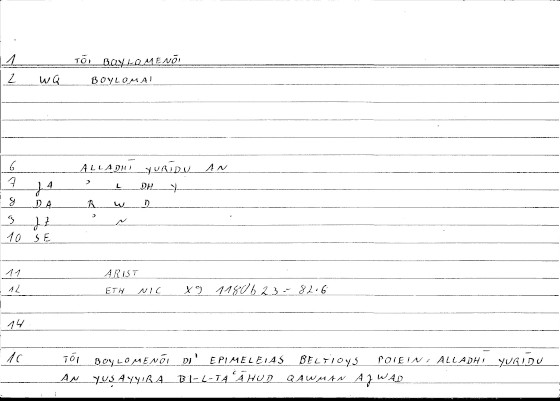 1 TŌI BOYLOMENŌI
2 WQ BOYLOMAI
6 ALLADHĪ YURĪDU AN
7 JA ʾ L DH Y
8 DA R W D
9 JZ ʾ N
10 SE
11 ARIST
12 ETH NIC X9 1180B23 = 82.6
14
16 TŌI BOYLOMENŌI DI' EPIMELEIAS BELTIOYS POIEIN. ALLADHĪ YURĪDU
AN YUṢAYYIRA BI-L-TAʿĀHUD QAWMAN AJWAD